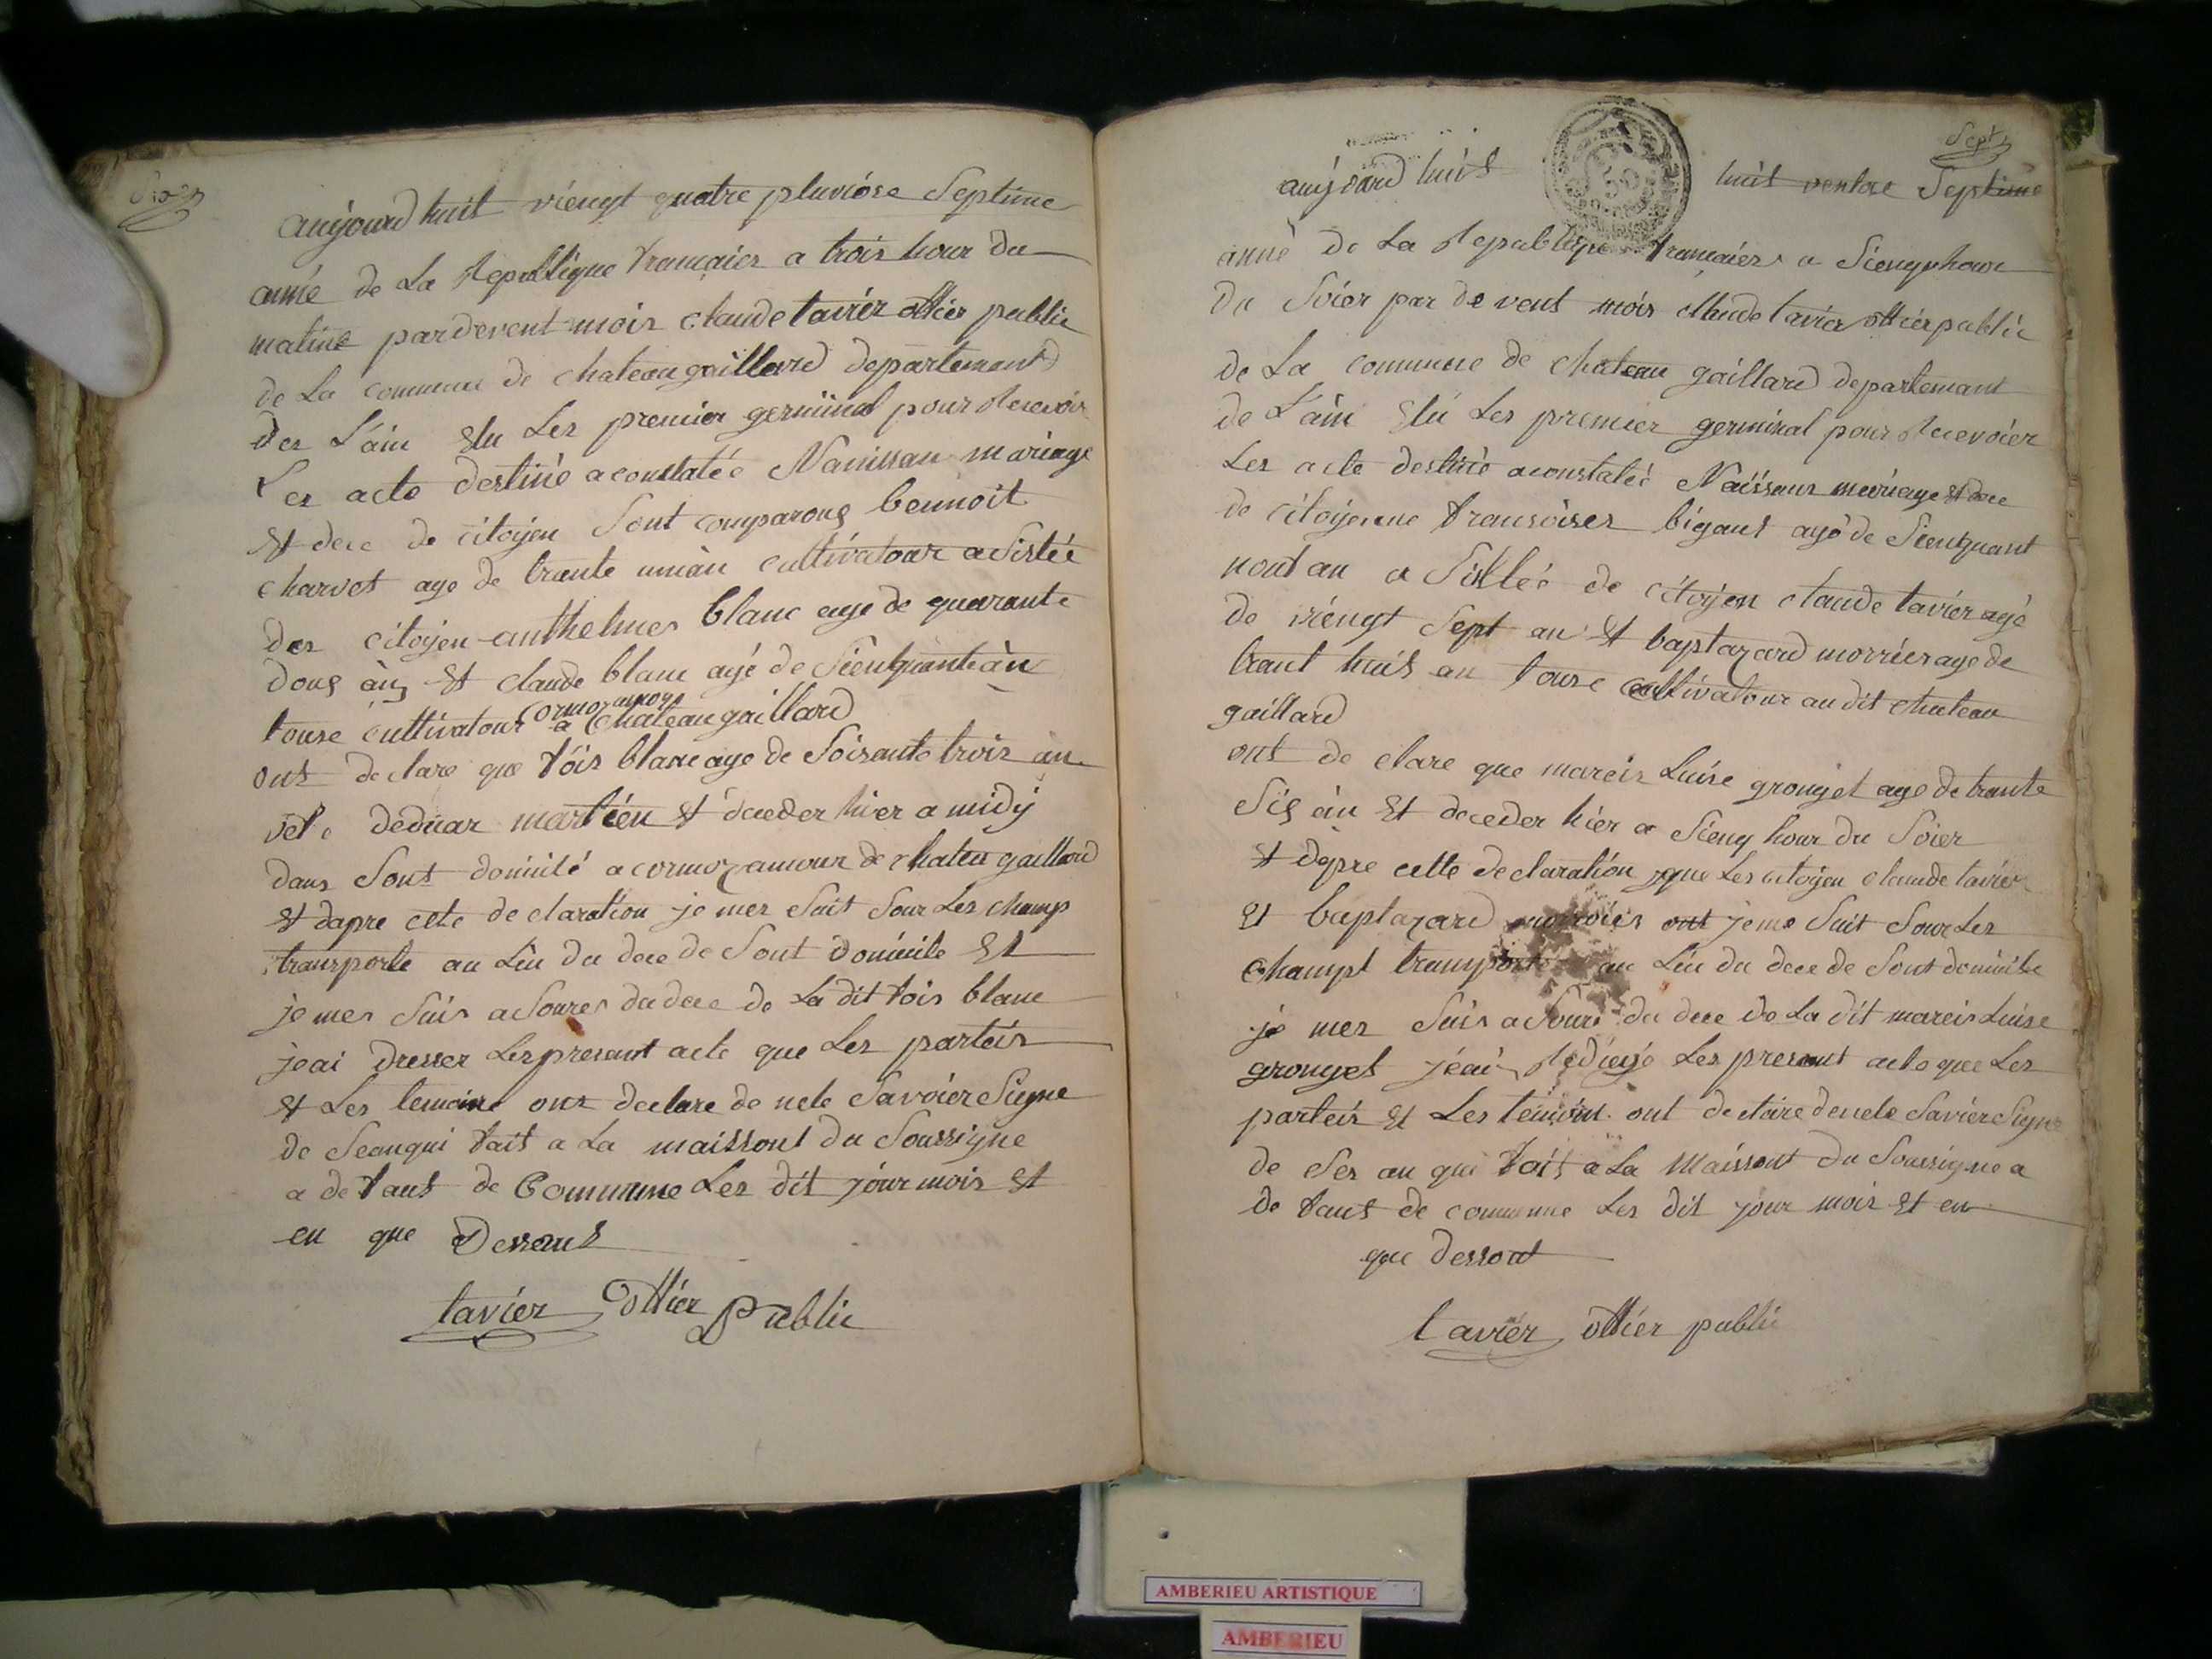 Six
aujourd huit viengt quatre pluvióse Septime
anné de La Republique francaies a trois hour du
matine pardevent mois claude tavier offier public
de La commune de chateau gaillard departemant
des L'ain élu Les premier germinal pour Recevoir
Les acte destiné a constatée Naissan mariage
et dece de citoyen Sont comparous bennoit
charvet age de trante unàn cultivatour asistée
des citoyen anthelmes blanc age de quarante
doux àn et claude blanc agé de Sienquante àn
touse cultivatour a chateau gaillard
ont declare que fóis blanc age de Soisante trois àn
vefe deduar martién et deceder hier a midÿ
dans Sont domicilé a cormoz de chateu gaillard
et dapre cete declaration je mes Suit Sour Les champ
transporte au Liu du dece de Sont domicile Et
je mes Suis asoures du dece de La dit fois blanc
jeai dresser Les presant acte que Les parteis
et Les temoins ont declare de nete Savoier Signe
de Seanqui fait a La maissont du Soussigne
a defaut de Commune Les dit jóur mois et
en que Dessout
tavier offier Public
Sept
aujourd huit huit ventose Septime
anné de La Republique francaiés a Sienq hour
du Soier par devent móis claude tavier offier public
de La commune de chateau gaillard departemant
de L'ain élu Les premier germinal pour Recevoier
Les acte destiné a constateé Naissans mariage et dece
de citoyenne fransoises bigaut agé de Sienquant
nout an a Sisteé de citoyen claude tavier agé
de viengt Sept an et baptazard morrier age de
trant huit an touse cultivatour au dit chateau
gaillard
ont de clare que mareis Luise grouyet age de trante
Sis àn et deceder hiér a Sienq hour du Soier
et dapre cette declaration que Les citoyen claude tavier
et baptazard morroier ont je me Suit Sour Les
champt transporte au Liu du dece de Sont domicile
je mes Suis asouré du dece de La dit mareis Luise
grouyet jéai Redigé Les presant acte que Les
parteis et Les temoin ont declaire denete Savier Signe
de Ses an qui fait a La Maissont du Soussigne a
defaut de commune Les dit jour mois et en
que dessout
tavier offier public
AMBERIEU ARTISTIQUE
AMBERIEU